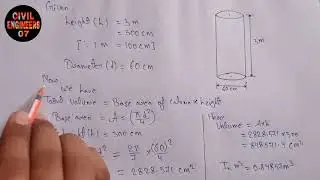 CIVIL
ENGINEERS
07
Given
Height (h) = 3m
= 300 cm
[∵ 1 m = 100 cm]
Diameter (d) = 60 cm
Now
we have
Total Volume = Base area of column × height
Base area = A = (πd²/4)
= 300 cm
= 22/7 × (60)²/4
= 2828.571 cm²
3m
60 cm
Now
Volume = A×h
= 2828.571×300
= 848571.4 cm³
In m³ = 0.84857m³